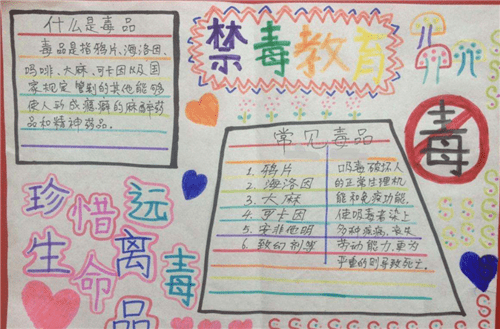 什么是毒品
毒品是指鸦片、海洛因、
吗啡、大麻、可卡因以及国
家规定管制的其他能够
使人形成瘾癖的麻醉药
品和精神药品。
禁毒教育
毒
常见毒品
1. 鸦片
2. 海洛因
3. 大麻
4. 可卡因
5. 安非他明
6. 致幻剂等
吸毒破坏人
的正常生理机
能和免疫功能,
使吸毒者染上
多种疾病,丧失
劳动能力,更为
严重的则导致死亡。
珍惜
生命
远离
毒
品